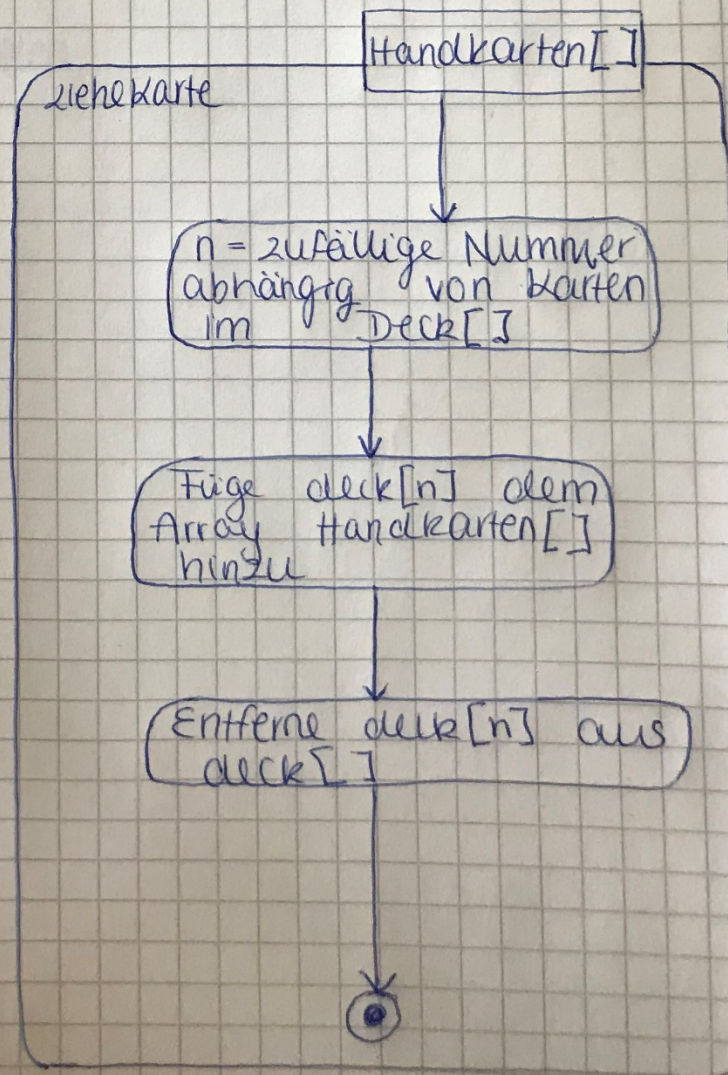 Handkarten[]
zieheKarte
n = zufällige Nummer
abhängig von Karten
im Deck[]
Füge deck[n] dem
Array Handkarten[]
hinzu
Entferne deck[n] aus
deck[]